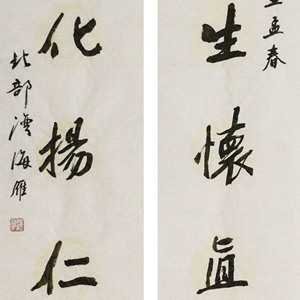 孟春
生懷眞
化揚仁
北部灣海雁